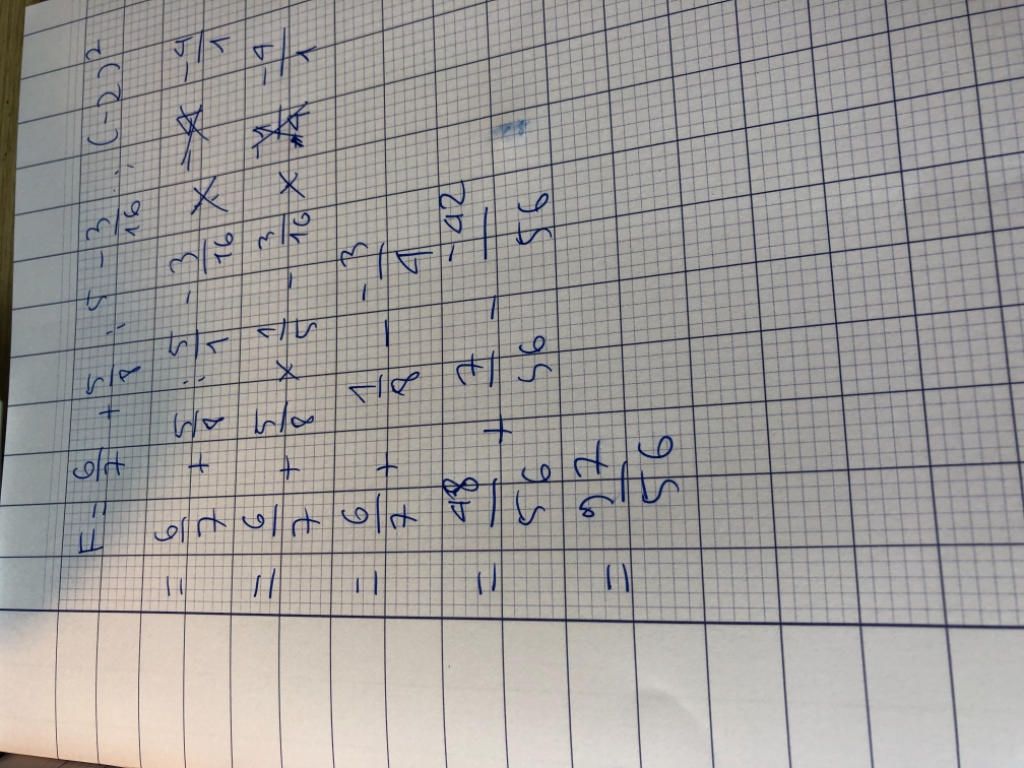 F = 6/7 + 5/8 : 5 - 3/16 : (-2)²
= 6/7 + 5/8 : 5/1 - 3/16 × -4/1
= 6/7 + 5/8 × 1/5 - 3/16 × -4/1
= 6/7 + 1/8 - -3/4
= 48/56 + 7/56 - -42/56
= 97/56